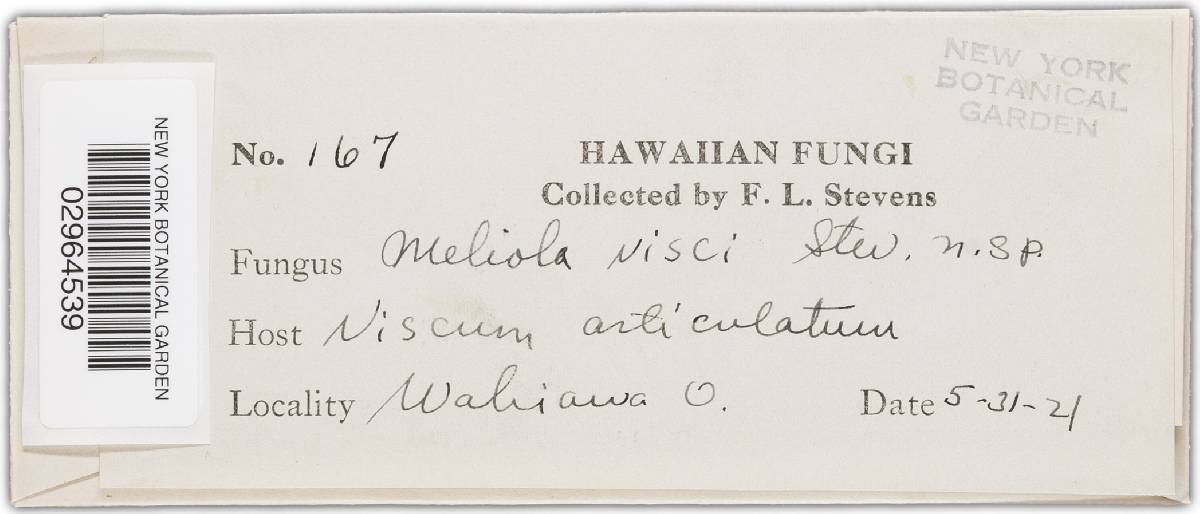 NEW YORK
BOTANICAL
GARDEN
NEW YORK BOTANICAL GARDEN
02964539
No. 167
HAWAIIAN FUNGI
Collected by F. L. Stevens
Fungus Meliola visci Stev. n.sp.
Host Viscum articulatum
Locality Wahiawa O. Date 5-31-21